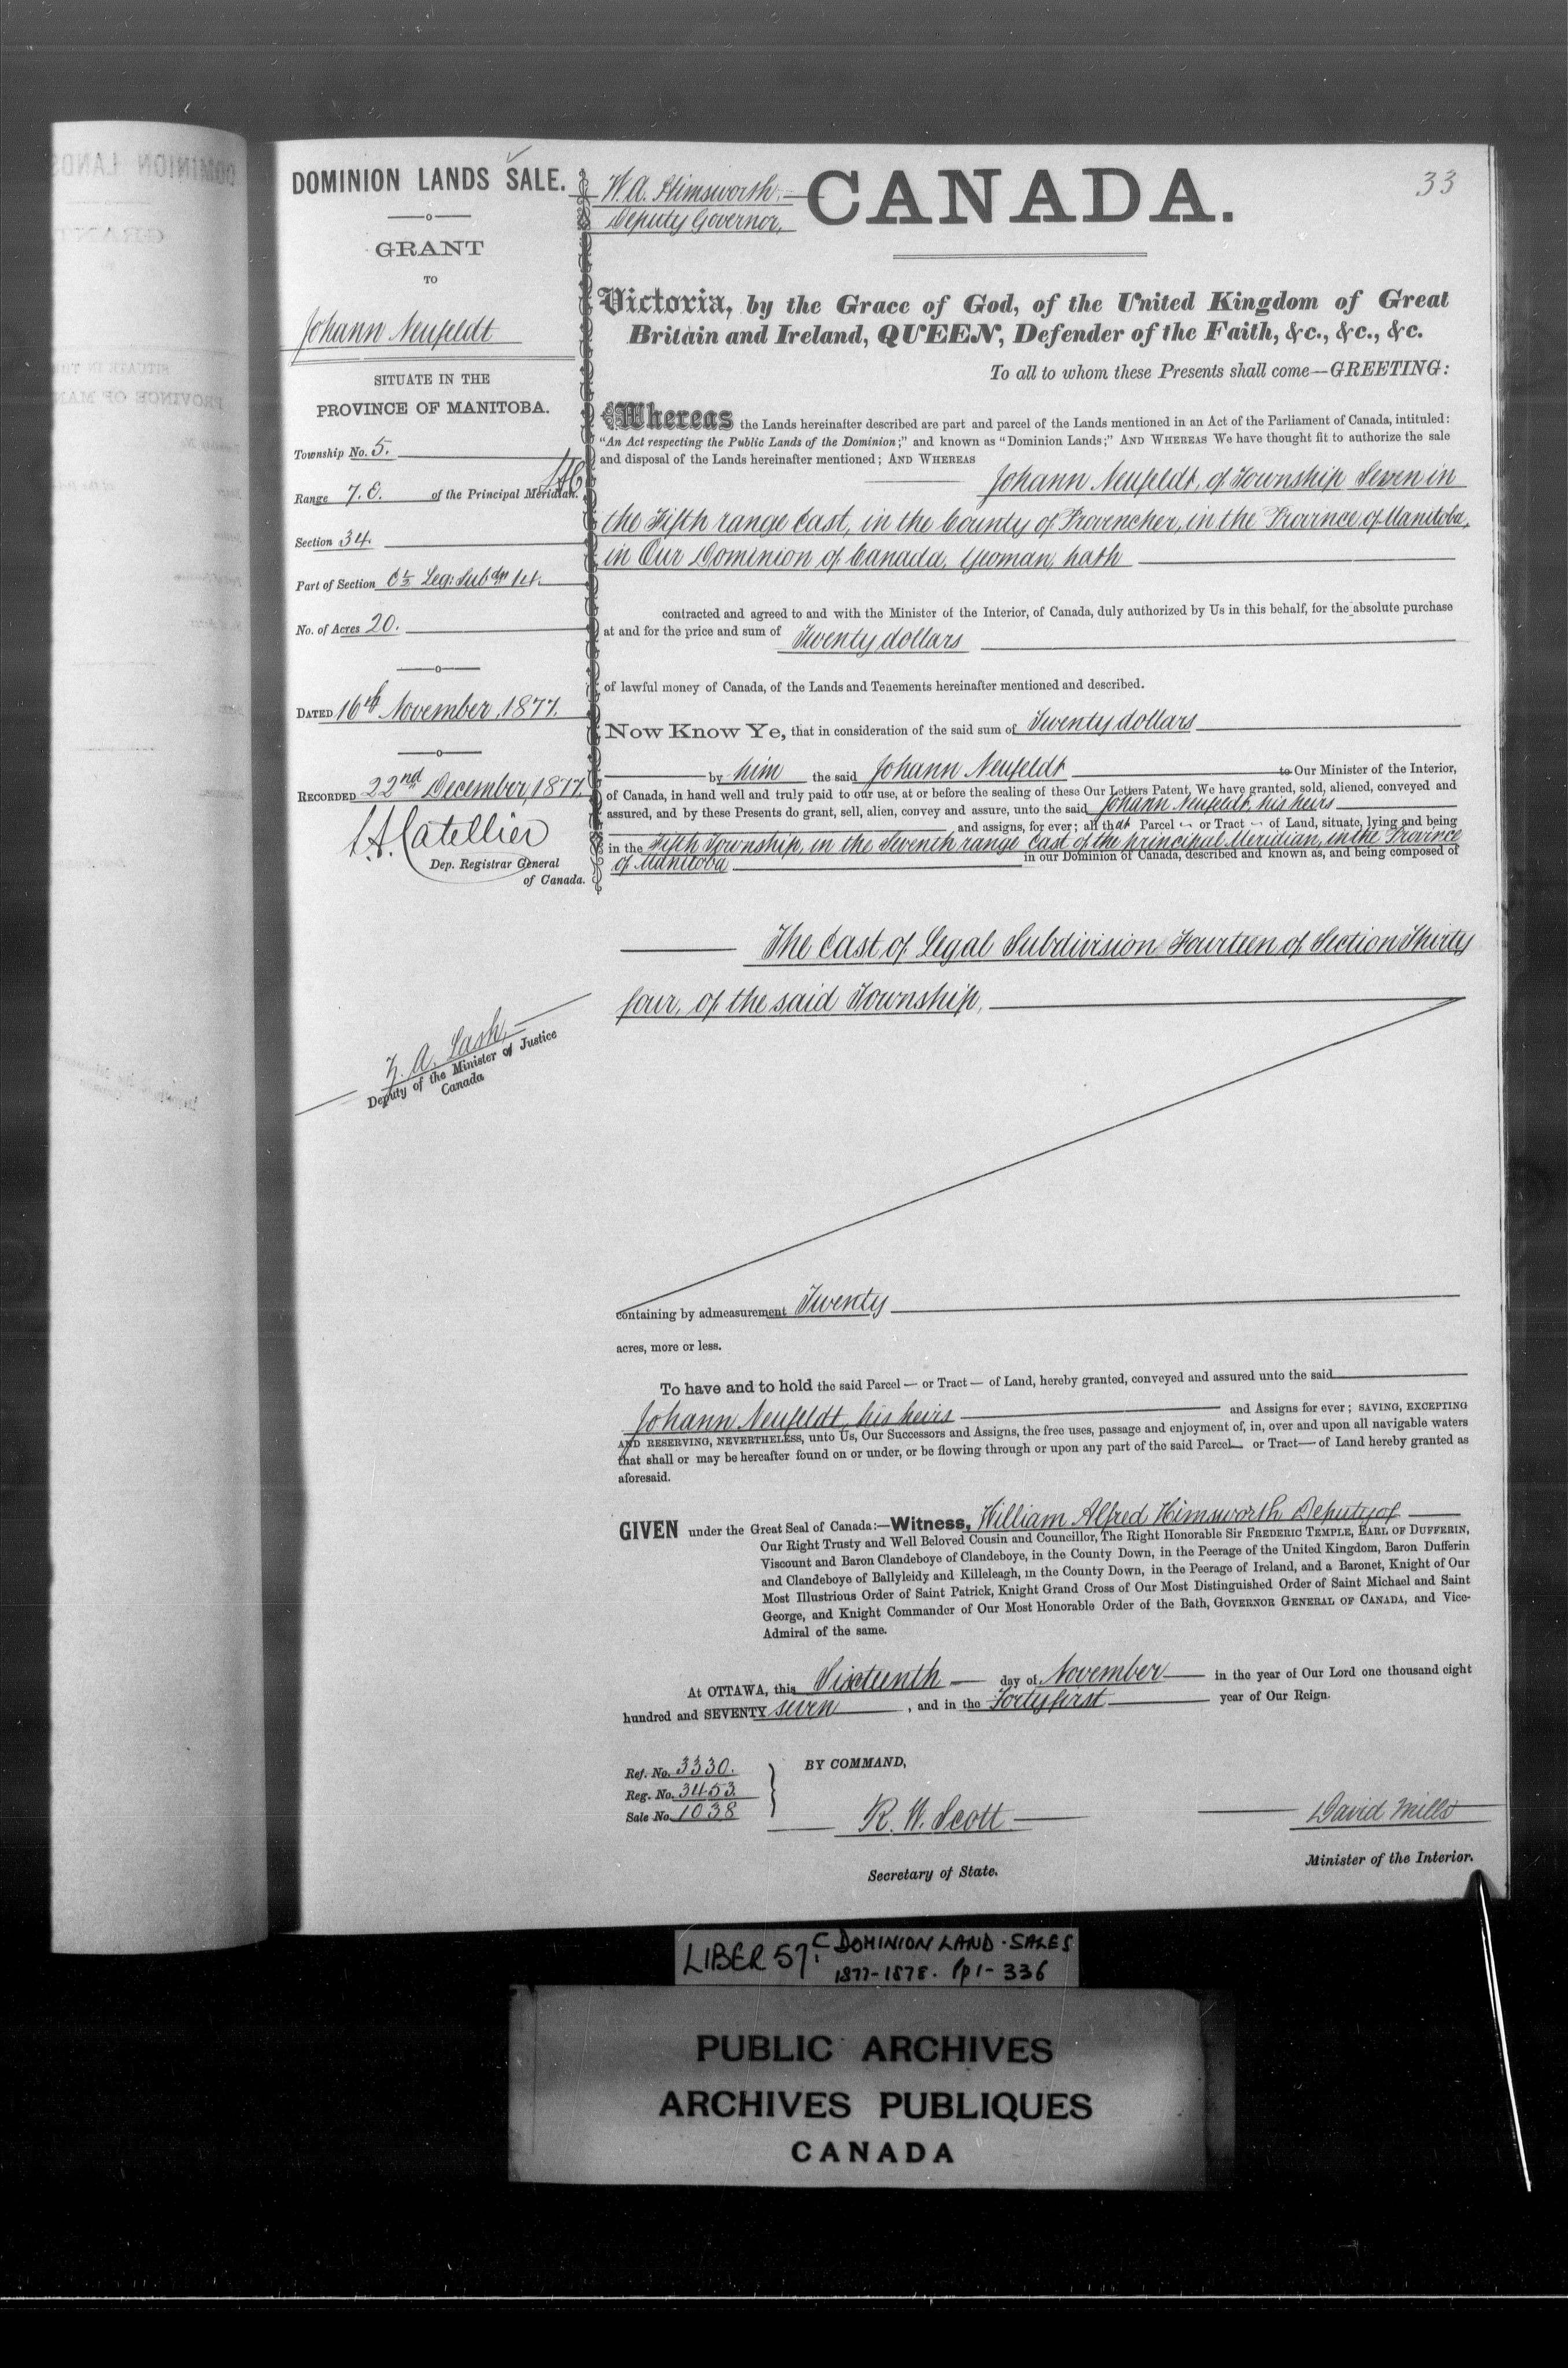 DOMINION LANDS SALE.
GRANT
TO
Johann Neufeldt
SITUATE IN THE
PROVINCE OF MANITOBA.
Township No. 5.
Range 7. E. of the Principal Meridian.
Section 34.
Part of Section E ½ Leg: Subdn 14.
No. of Acres 20.
DATED 16th November, 1877.
RECORDED 22nd December, 1877.
L.A. Catellier
Dep. Registrar General
of Canada.
Z. A. Lash,
Deputy of the Minister of Justice
Canada
33
W. A. Himsworth,
Deputy Governor,
CANADA.
Victoria, by the Grace of God, of the United Kingdom of Great
Britain and Ireland, QUEEN, Defender of the Faith, &c., &c., &c.
To all to whom these Presents shall come—GREETING:
Whereas the Lands hereinafter described are part and parcel of the Lands mentioned in an Act of the Parliament of Canada, intituled:
"An Act respecting the Public Lands of the Dominion;" and known as "Dominion Lands;" AND WHEREAS We have thought fit to authorize the sale
and disposal of the Lands hereinafter mentioned; AND WHEREAS
Johann Neufeldt, of Township Seven in
the Fifth range East, in the County of Provencher, in the Province of Manitoba,
in Our Dominion of Canada, Yeoman, hath
contracted and agreed to and with the Minister of the Interior, of Canada, duly authorized by Us in this behalf, for the absolute purchase
at and for the price and sum of Twenty dollars
of lawful money of Canada, of the Lands and Tenements hereinafter mentioned and described.
Now Know Ye, that in consideration of the said sum of Twenty dollars
by him the said Johann Neufeldt to Our Minister of the Interior,
of Canada, in hand well and truly paid to our use, at or before the sealing of these Our Letters Patent, We have granted, sold, aliened, conveyed and
assured, and by these Presents do grant, sell, alien, convey and assure, unto the said Johann Neufeldt, his heirs
and assigns, for ever; all that Parcel — or Tract — of Land, situate, lying and being
in the Fifth Township, in the Seventh range East of the principal Meridian, in the Province
of Manitoba in our Dominion of Canada, described and known as, and being composed of
The East of Legal Subdivision Fourteen of Section Thirty
four, of the said Township,
containing by admeasurement Twenty
acres, more or less.
To have and to hold the said Parcel — or Tract — of Land, hereby granted, conveyed and assured unto the said
Johann Neufeldt, his heirs and Assigns for ever; SAVING, EXCEPTING
AND RESERVING, NEVERTHELESS, unto Us, Our Successors and Assigns, the free uses, passage and enjoyment of, in, over and upon all navigable waters
that shall or may be hereafter found on or under, or be flowing through or upon any part of the said Parcel — or Tract — of Land hereby granted as
aforesaid.
GIVEN under the Great Seal of Canada:—Witness, William Alfred Himsworth Deputy of
Our Right Trusty and Well Beloved Cousin and Councillor, The Right Honorable Sir FREDERIC TEMPLE, EARL OF DUFFERIN,
Viscount and Baron Clandeboye of Clandeboye, in the County Down, in the Peerage of the United Kingdom, Baron Dufferin
and Clandeboye of Ballyleidy and Killeleagh, in the County Down, in the Peerage of Ireland, and a Baronet, Knight of Our
Most Illustrious Order of Saint Patrick, Knight Grand Cross of Our Most Distinguished Order of Saint Michael and Saint
George, and Knight Commander of Our Most Honorable Order of the Bath, GOVERNOR GENERAL OF CANADA, and Vice-
Admiral of the same.
At OTTAWA, this Sixteenth — day of November — in the year of Our Lord one thousand eight
hundred and SEVENTY seven, and in the Forty first year of Our Reign.
Ref. No. 3330.
Reg. No. 3453.
Sale No. 1038
BY COMMAND,
R. W. Scott
Secretary of State.
David Mills
Minister of the Interior.
LIBER 57C. DOMINION LAND SALES
1877-1878. pp 1-336
PUBLIC ARCHIVES
ARCHIVES PUBLIQUES
CANADA